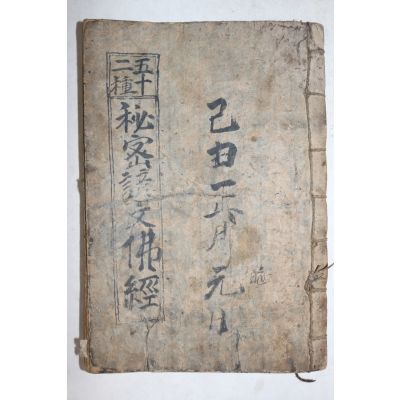 己丑正月元日
五十
二種
秘密諺文佛經